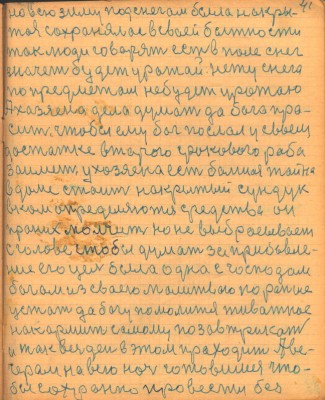 41
но всю зиму под снегом была накры-
тая сохранялас в своей бытности
так люди говорят ест в поле снег
значет будет урожай нету снега
по предметам небудет урожаю
А хазяена дела думат да бога про-
сит чтобы ему бог послал у своем
достатке второго срокового раба
заимет ухозяена ест балшая тайна
в доме стоит накрытый сундук
в ком определяются средства он
про них молчит но не выбрасывает
с голове чтобы думат за прибавле-
ние его цел была одна с господом
богам из своею молитвою по рание
устат да богу помолится животное
накормит самому позавтрикат
и так вес ден в этом проходит А ве-
черам на всю ноч готовился что-
бы сохранно провести без